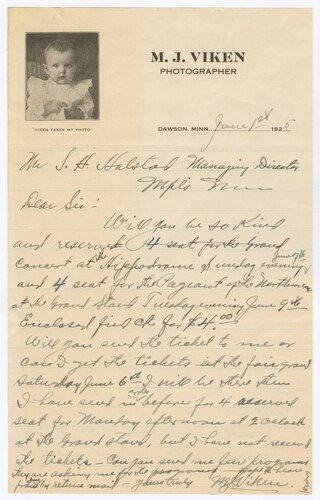 M. J. VIKEN
PHOTOGRAPHER
"VIKEN TAKES MY PHOTO"
DAWSON, MINN., June 1st 1925
Mr J. H. Halstad Managing Director
Mpls Minn
Dear Sir:-
Will you be so kind
and reserved 14 seat for the Grand
Concert at the Hippodrome Sunday evening June 7th
and 4 seat for the Pageant of the Northmen
at the Grand Stand Tuesday evening June 9th
Enclosed find ck for $4.00
Will you send the ticket to me or
can I get the tickets at the fair ground
Saturday June 6th I will be there then
I have sent in before for 4 reserved
seat for Monday afternoon at 2 oclock
at the Grand Stand, but I have not received
the tickets - Can you send me few programs
They are asking me for the programs
by return mail - yours truly M J Viken